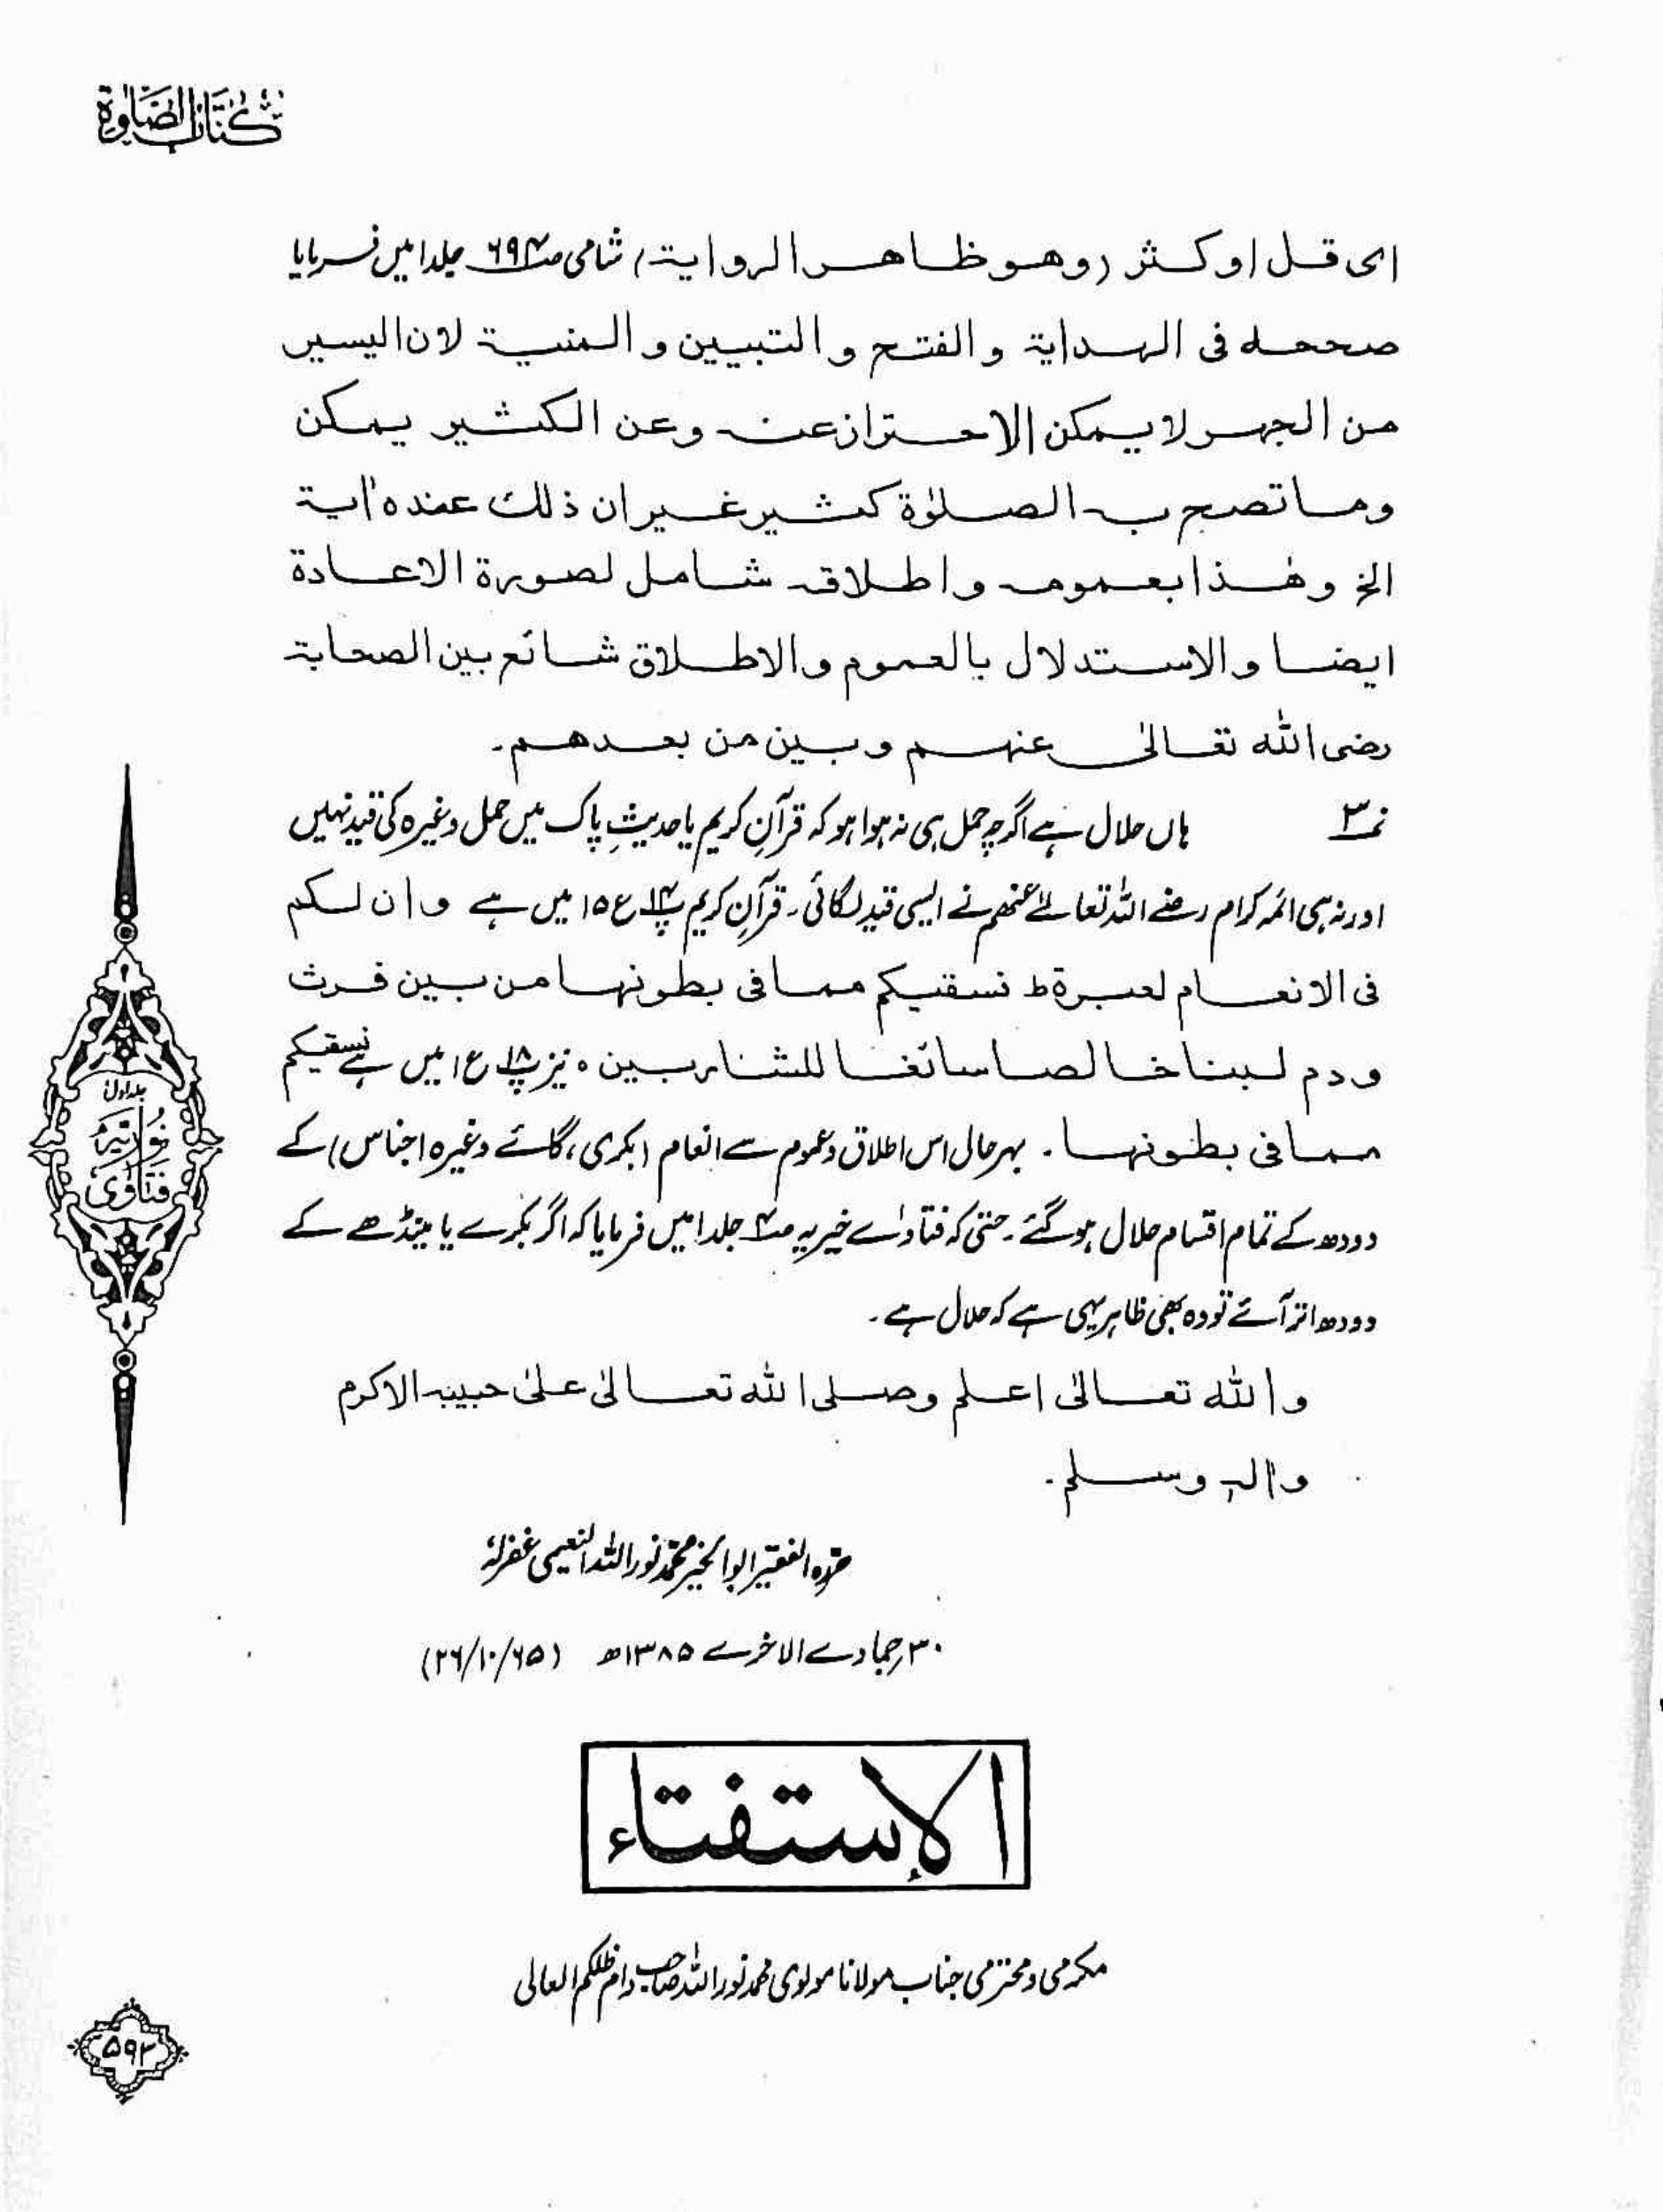 کتاب الصلوٰۃ
ای قل او کثر (وھو ظاھر الروایۃ) شامی ص۶۹۴ جلد۱ میں فرمایا
صححہ فی الھدایۃ و الفتح و التبیین و المنیۃ لان الیسیر
من الجھر لا یمکن الاحتراز عنہ وعن الکثیر یمکن
وما تصح بہ الصلوٰۃ کثیر غیر ان ذلک عندہ اٰیۃ
الخ وھٰذا بعمومہ واطلاقہ شامل لصورۃ الاعادۃ
ایضا والاستدلال بالعموم والاطلاق شائع بین الصحابۃ
رضی اللہ تعالیٰ عنہم وبین من بعدھم۔
نمبر۳ ہاں حلال ہے اگرچہ حمل ہی نہ ہوا ہو کہ قرآنِ کریم یا حدیثِ پاک میں حمل وغیرہ کی قید نہیں
اور نہ ہی ائمہ کرام رضے اللہ تعالےٰ عنھم نے ایسی قید لگائی۔ قرآنِ کریم پ۱۴ ع۱۵ میں ہے وان لکم
فی الانعام لعبرۃ ط نسقیکم مما فی بطونہا من بین فرث
ودم لبنا خالصا سائغا للشاربین ہ نیز پ۱۸ ع۱ میں ہے نسقیکم
مما فی بطونہا۔ بہرحال اس اطلاق وعموم سے انعام (بکری، گائے وغیرہ اجناس) کے
دودھ کے تمام اقسام حلال ہو گئے۔ حتیٰ کہ فتاوٰے خیریہ ص۴ جلد۱ میں فرمایا کہ اگر بکرے یا مینڈھے کے
دودھ اتر آئے تو وہ بھی ظاہر یہی ہے کہ حلال ہے۔
واللہ تعالیٰ اعلم وصلی اللہ تعالیٰ علیٰ حبیبہ الاکرم
واٰلہٖ وسلم۔
حررہ الفقیر ابو الخیر محمد نور اللہ النعیمی غفرلہٗ
۳۰؍جمادے الاخرے ۱۳۸۵ھ (۲۶/۱۰/۶۵)
جلد اول
نوریہ
فتاویٰ
الاِستفتاء
مکرمی ومحترمی جناب مولانا مولوی محمد نور اللہ صاحب دام ظلکم العالی
۵۹۳